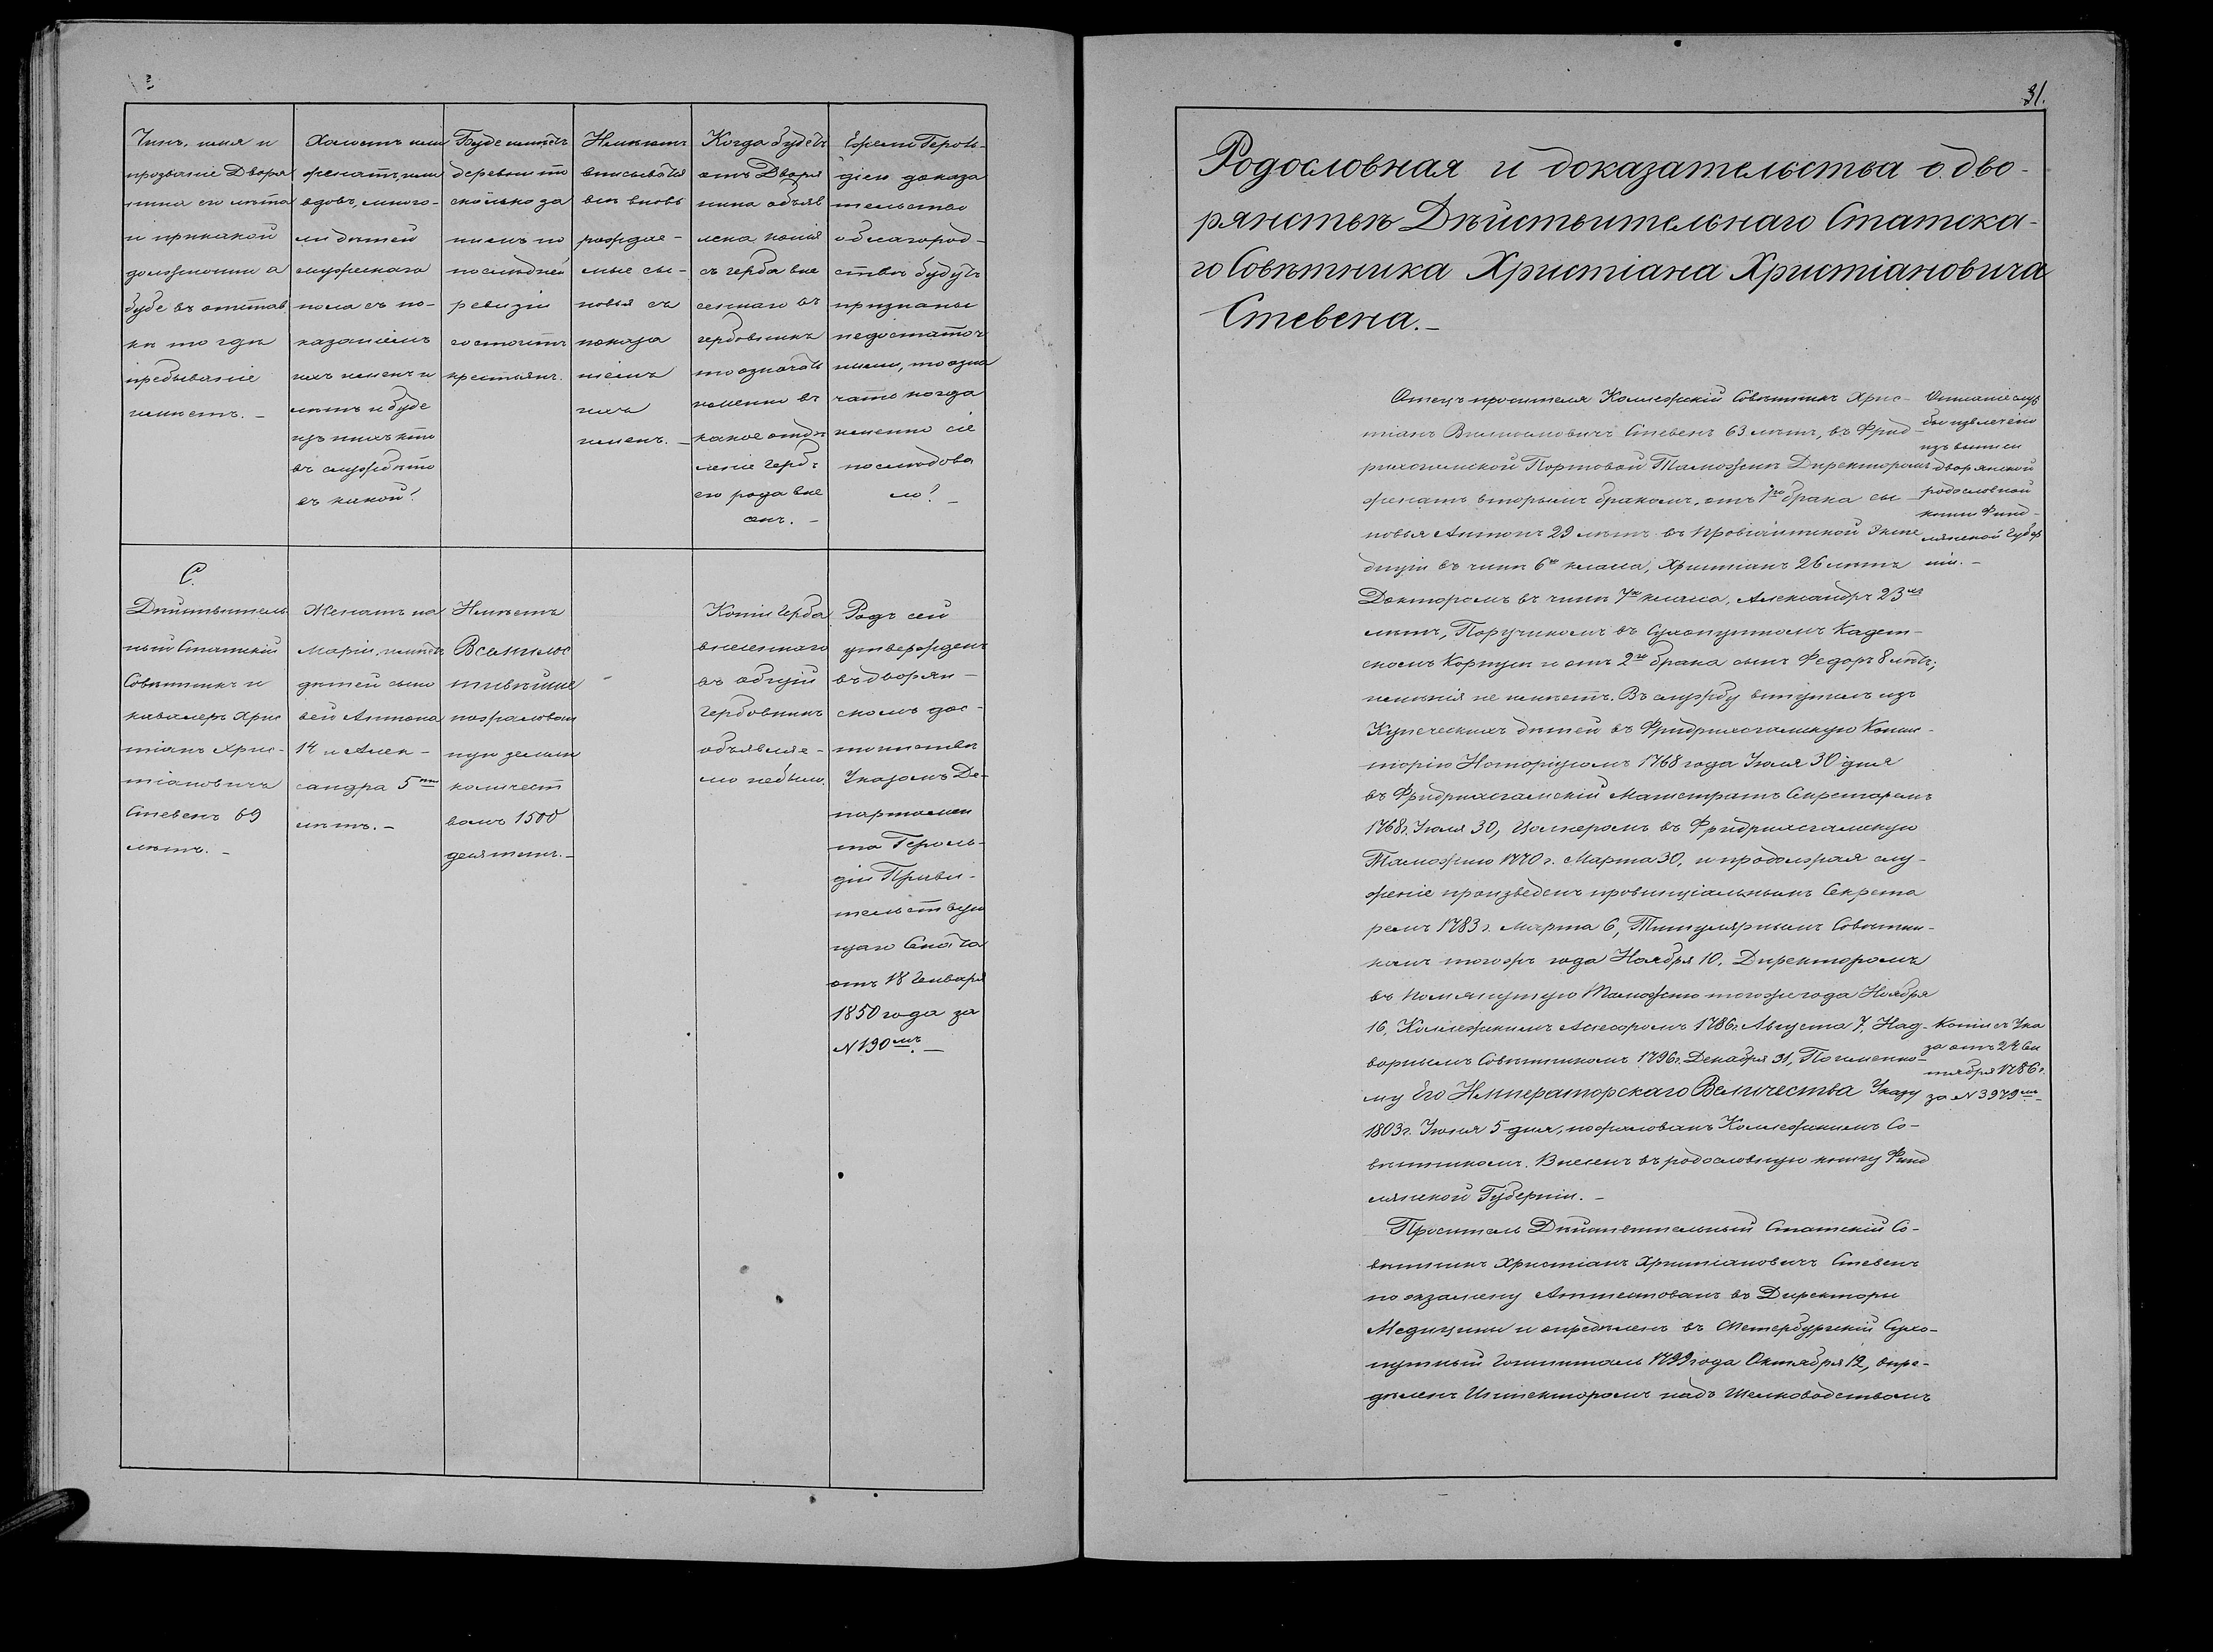 Чинъ, имя и
прозваніе Дворя
нина его лѣта
и при какой
должности а
буде въ отстав
кѣ то гдѣ
пребываніе
имѣетъ. –
Холостъ или
женатъ, или
вдовъ, много-
ли дѣтей
мужескаго
пола съ по-
казаніемъ
ихъ именъ и
лѣтъ и буде
изъ нихъ кто
въ службѣ то
въ какой?
Буде имѣетъ
деревни то
сколько за
нимъ по
послѣдней
ревизіи
состоитъ
крестьянъ.
вписывать
вновь
рождае-
мые сы-
новья съ
показа
ніемъ
ихъ
именъ. –
Когда будетъ
отъ Дворя
нина объяв
лена копія
съ герба вне
сеннаго въ
гербовникъ
то означать
именно въ
какое отдѣ
леніе гербъ
его рода вне
сенъ. –
Ежели Героль-
діею доказа
тельства
о благород-
ствѣ будутъ
признаны
недостаточ
ными, то озна
чать когда
именно сіе
послѣдова
ло? –
С.
Дѣйствитель
ный Статскій
Совѣтникъ и
кавалеръ Хрис
тіанъ Хрис-
тіановичъ
Стевенъ 69
лѣтъ. –
Женатъ на
Маріи, имѣетъ
дѣтей сыно
вей Антона
14 и Алек-
сандра 5ти
лѣтъ. –
Имѣетъ
Всемилос
тивѣйше
пожалован
ную землю
количест
вомъ 1500
десятинъ. –
Копіи герба
внесеннаго
въ общій
гербовникъ
объявляе-
мо небыло.
Родъ сей
утвержденъ
въ дворян-
скомъ дос-
тоинствѣ
Указомъ Де-
партамен
та Героль-
діи Прави-
тельствую
щаго Сената
отъ 18 Генваря
1850 года за
№ 190мъ. –
31.
Родословная и доказательства о дво-
рянствѣ Дѣйствительнаго Статска-
го Совѣтника Христіана Христіановича
Стевена. –
Отецъ просителя Коллежскій Совѣтникъ Хрис-
тіанъ Стевенъ 63 лѣтъ, въ Фрид-
рихсгамской Портовой Таможнѣ Директоромъ
женатъ вторымъ бракомъ, отъ 1го брака сы-
новья Антонъ 29 лѣтъ въ Провіантской Экспе
диціи въ чинѣ 6го класса, Христіанъ 26 лѣтъ
Докторомъ въ чинѣ 7го класса, Александръ 23хъ
лѣтъ, Поручикомъ въ Сухопутномъ Кадет-
скомъ Корпусѣ и отъ 2го брака сынъ Федоръ 8 лѣтъ;
имѣнія не имѣетъ. Въ службу вступилъ изъ
Купеческихъ дѣтей въ Фридрихсгамскую Консис-
торію Нотаріусомъ 1768 года Іюля 30 дня
въ Фридрихсгамскій Магистратъ Секретаремъ
1768 г. Іюля 30, Цолнеромъ въ Фридрихсгамскую
Таможню 1770 г. Марта 30, и продолжая слу-
женіе произведенъ провинціальнымъ Секрета
ремъ 1783 г. Марта 6, Титулярнымъ Совѣтни-
комъ тогожъ года Ноября 10. Директоромъ
въ помянутую Таможню тогоже года Ноября
16, Коллежскимъ Ассесоромъ 1786 г. Августа 7, Над-
ворнымъ Совѣтникомъ 1796 г. Декабря 31, По именно-
му Его Императорскаго Величества Указу
1803 г. Іюня 5 дня, пожалованъ Коллежскимъ Со-
вѣтникомъ. Внесенъ въ родословную книгу Фин
ляндской Губерніи. –
Проситель Дѣйствительный Статскій Со-
вѣтникъ Христіанъ Христіановичъ Стевенъ
по экзамену Аттестованъ въ Директоры
Медицины и опредѣленъ въ Петербургскій Сухо-
путный Госпиталь 1799 года Октября 12, опре-
дѣленъ Инспекторомъ надъ Шелководствомъ
Описаніе служ
бы извлечено
изъ выписи
дворянской
родословной
книги Фин-
ляндской Губер
ніи. –
Копія съ Ука
за отъ 24 Сен
тября 1786 г.
за № 3979мъ